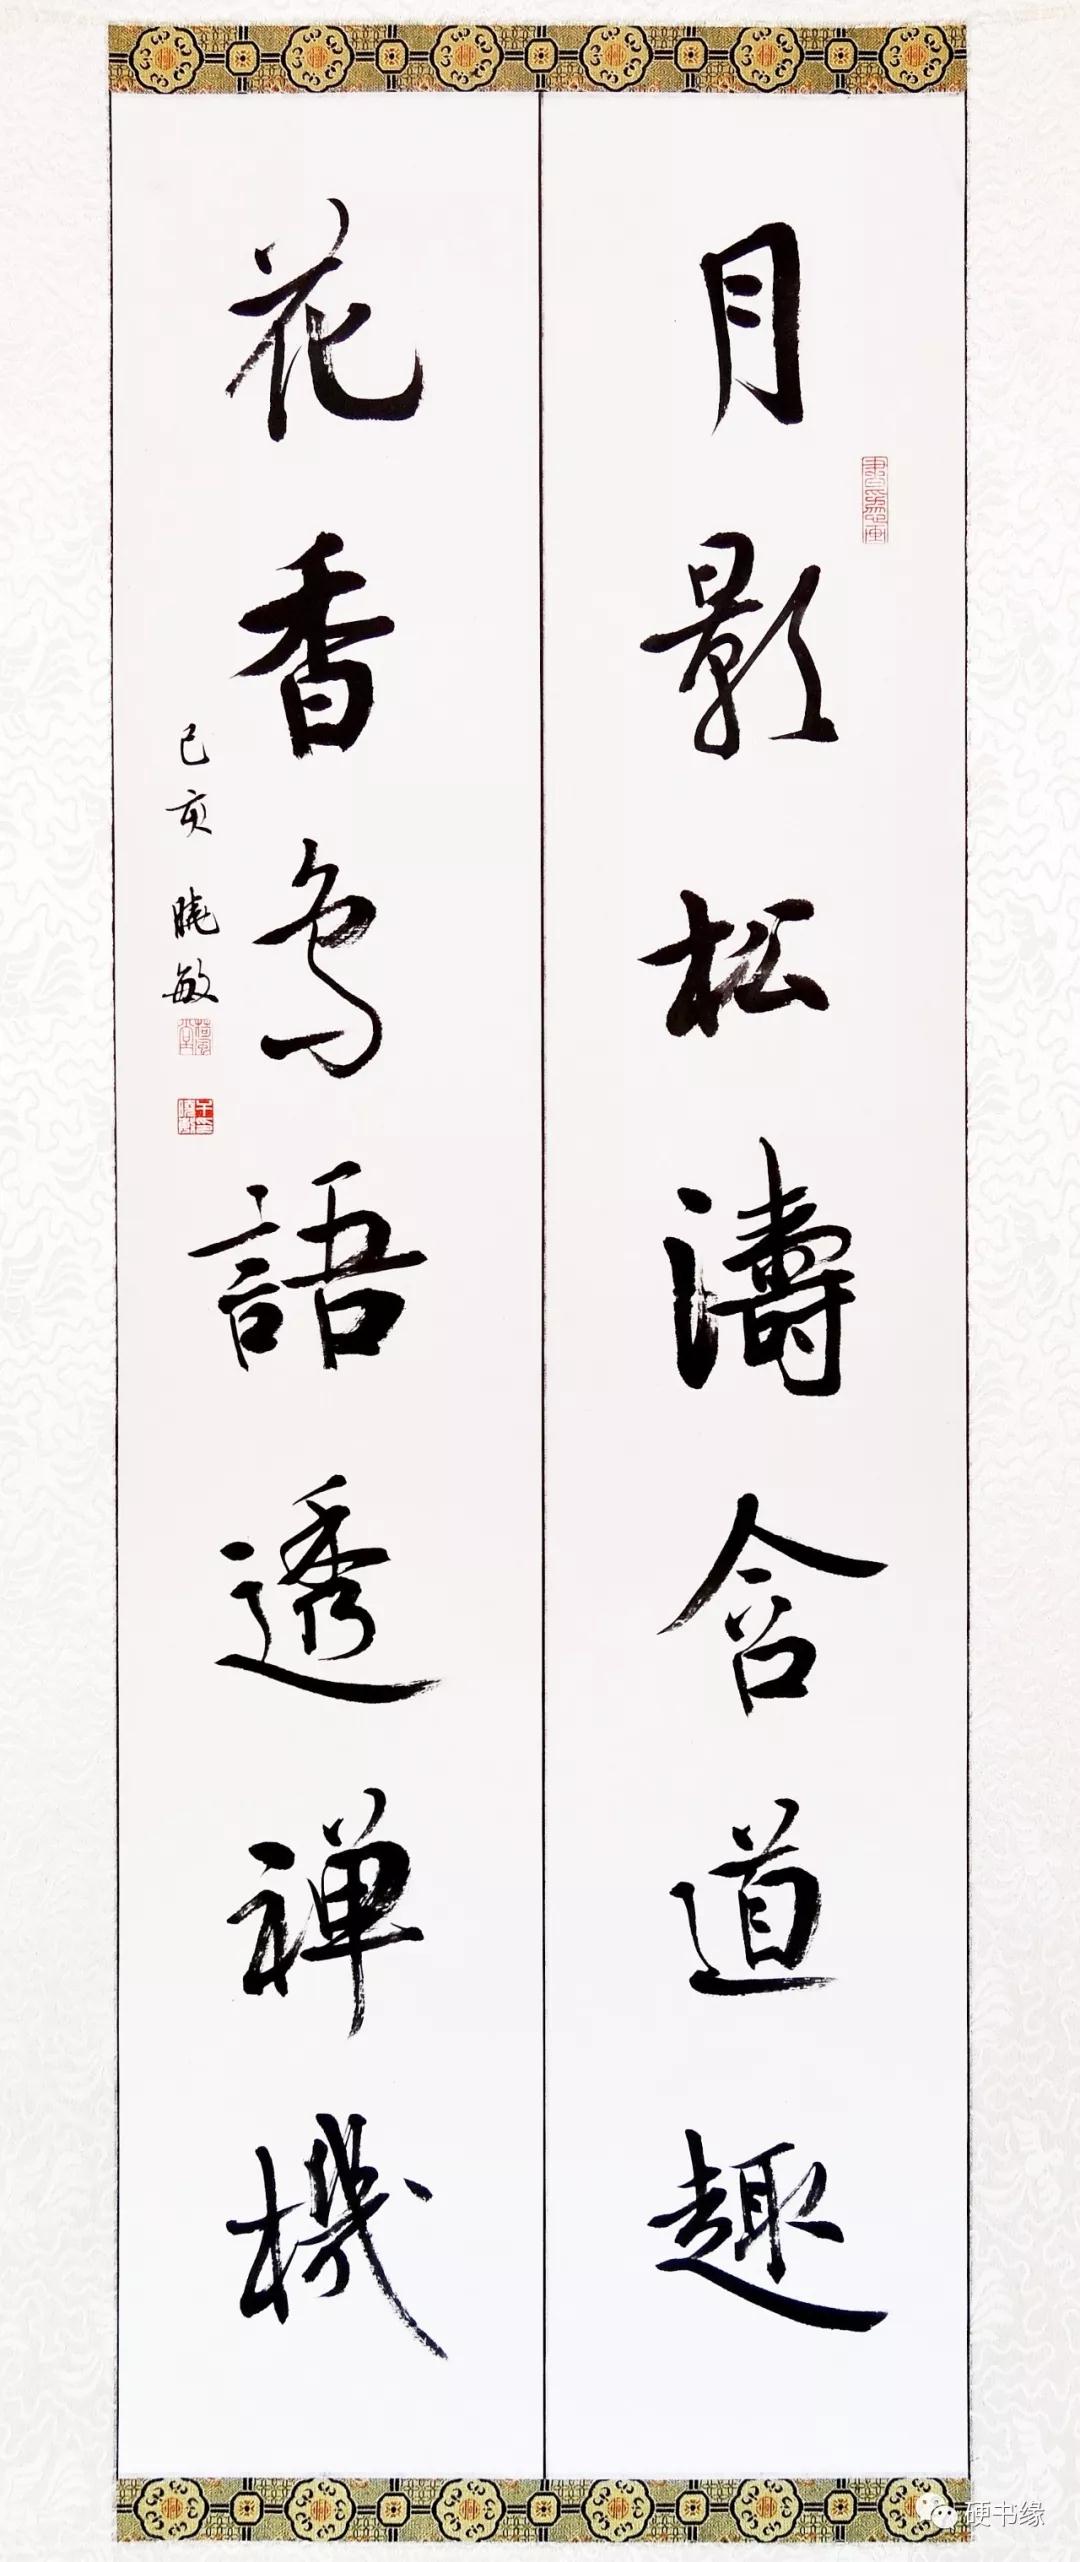 月影松濤含道趣
花香鳥語透禅機
己亥 曉敏
硬书缘